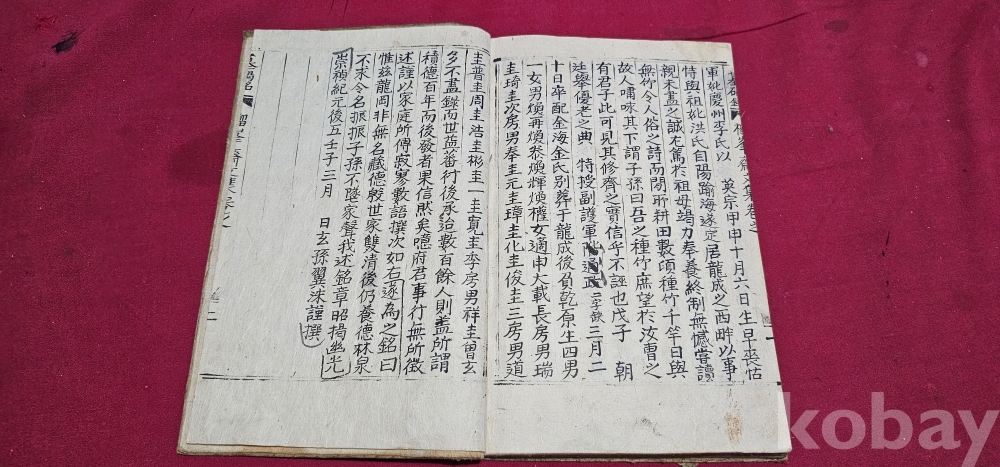 軍妣慶州李氏以 英宗甲申十月六日生早喪怙
恃與祖妣洪氏自陽踰海遂定居龍成之西畔以事
親未盡之誠尤篤於祖母竭力奉養終制無憾嘗讀
無竹令人俗之詩而閉耕田數頃種竹千竿日與
故人嘯咏其下謂子孫曰吾之種竹庶望於汝曹之
有君子此可見其修齊之實信乎不誣也戊子 朝
廷擧優老之典 特授副護軍 三月二
十日卒配金海金氏別葬于龍成後負乾原生四男
一女男煥再煥 煥輝煥 女適申大載長房男瑞
圭琦圭次房男奉圭元圭璋圭化圭俊圭三房男道
圭普圭周圭浩圭彬圭一圭寬圭季房男祥圭曾玄
多不盡錄而世益蕃衍後承迨數百餘人則盖所謂
積德百年而後發者果信然矣噫府君事行無所徵
述謹以家庭所傳寂寥數語撰次如右遂爲之銘曰
惟玆龍岡非無名藏德殷世家雙清後仍養德林泉
不求令名振振子孫不墜家聲我述銘章昭揭幽光
崇禎紀元後五壬子三月 日玄孫翼洙謹撰
二
kobay